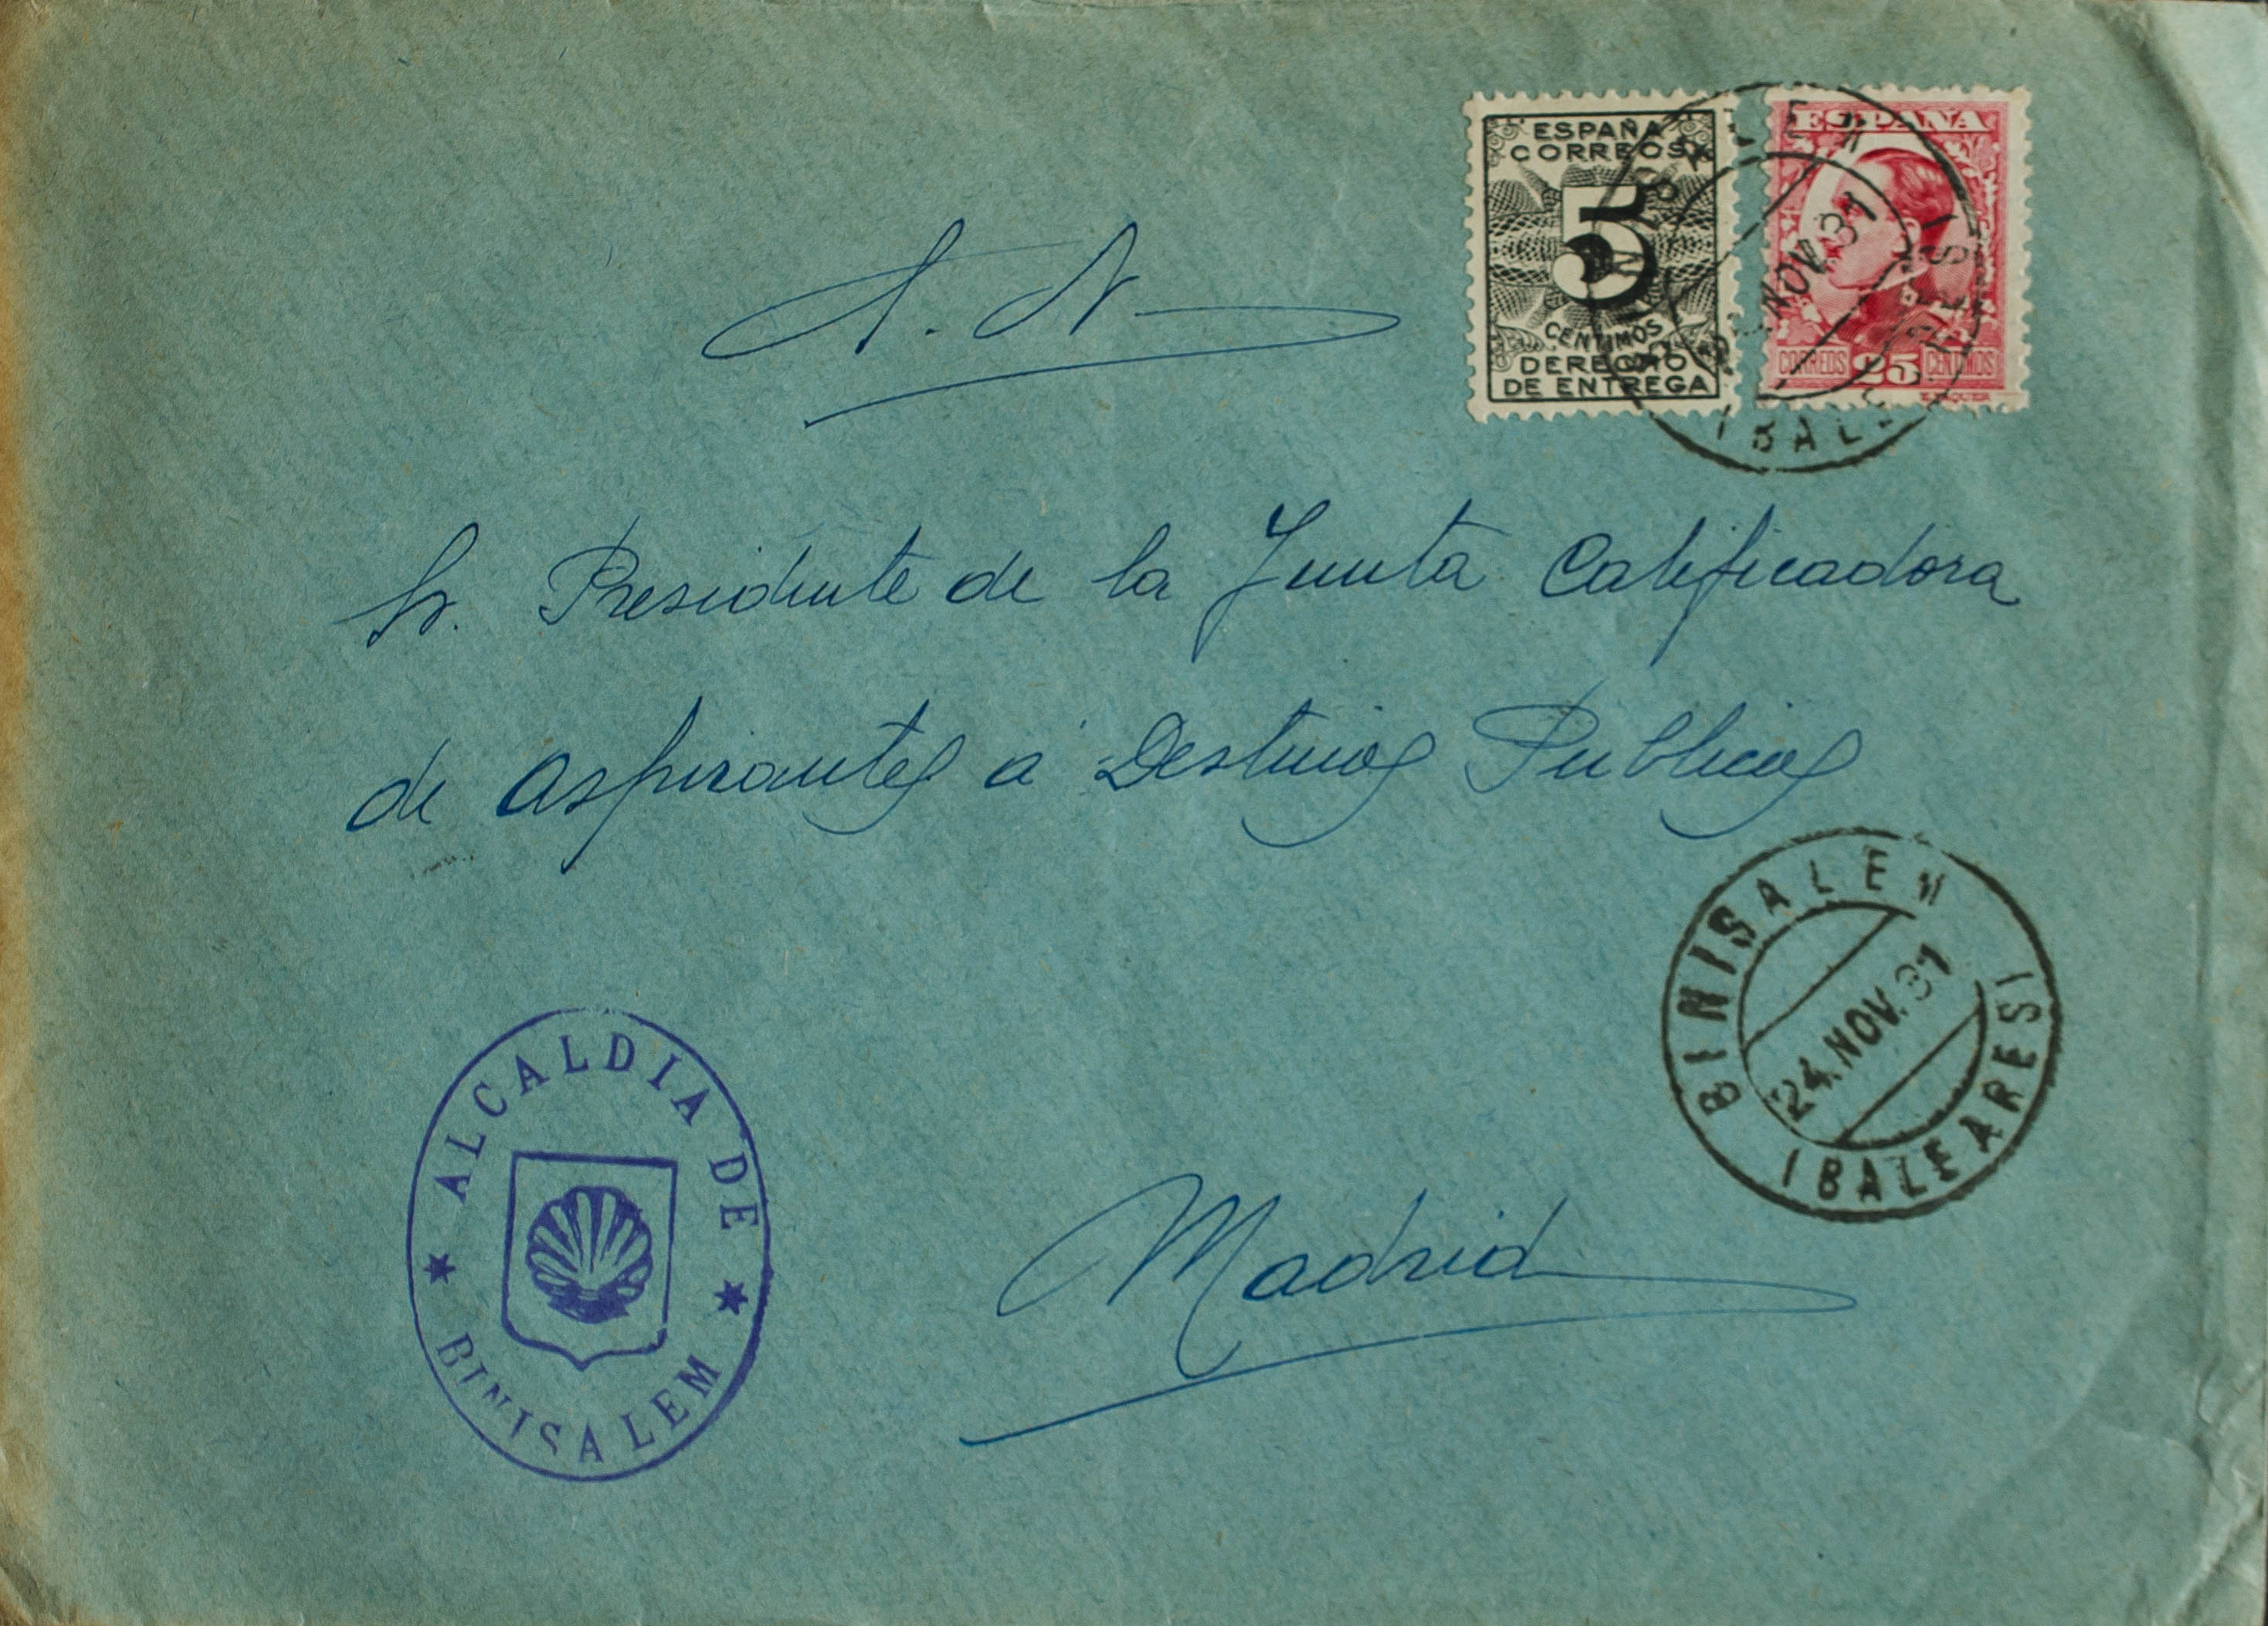 ESPAÑA
CORREOS
5
CENTIMOS
DERECHO
DE ENTREGA
ESPAÑA
CORREOS 25 CENTIMOS
NOV. 31
S. N.
Sr. Presidente de la Junta Calificadora
de Aspirantes a Destinos Publicos
Madrid
BINISALEM
24. NOV. 31
(BALEARES)
ALCALDIA DE
BINISALEM